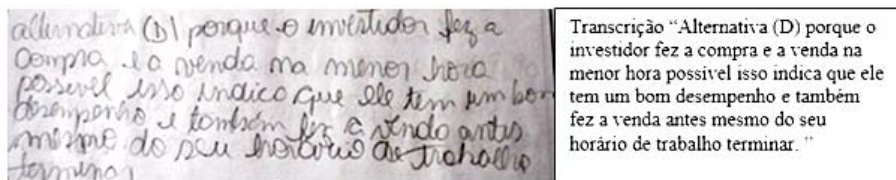 alternativa (D) porque o investidor fez a
compra e a venda na menor hora
possivel isso indica que ele tem um bom
desempenho e também fez a venda antes
mesmo do seu horário de trabalho
terminar
Transcrição “Alternativa (D) porque o
investidor fez a compra e a venda na
menor hora possível isso indica que ele
tem um bom desempenho e também
fez a venda antes mesmo do seu
horário de trabalho terminar. ”